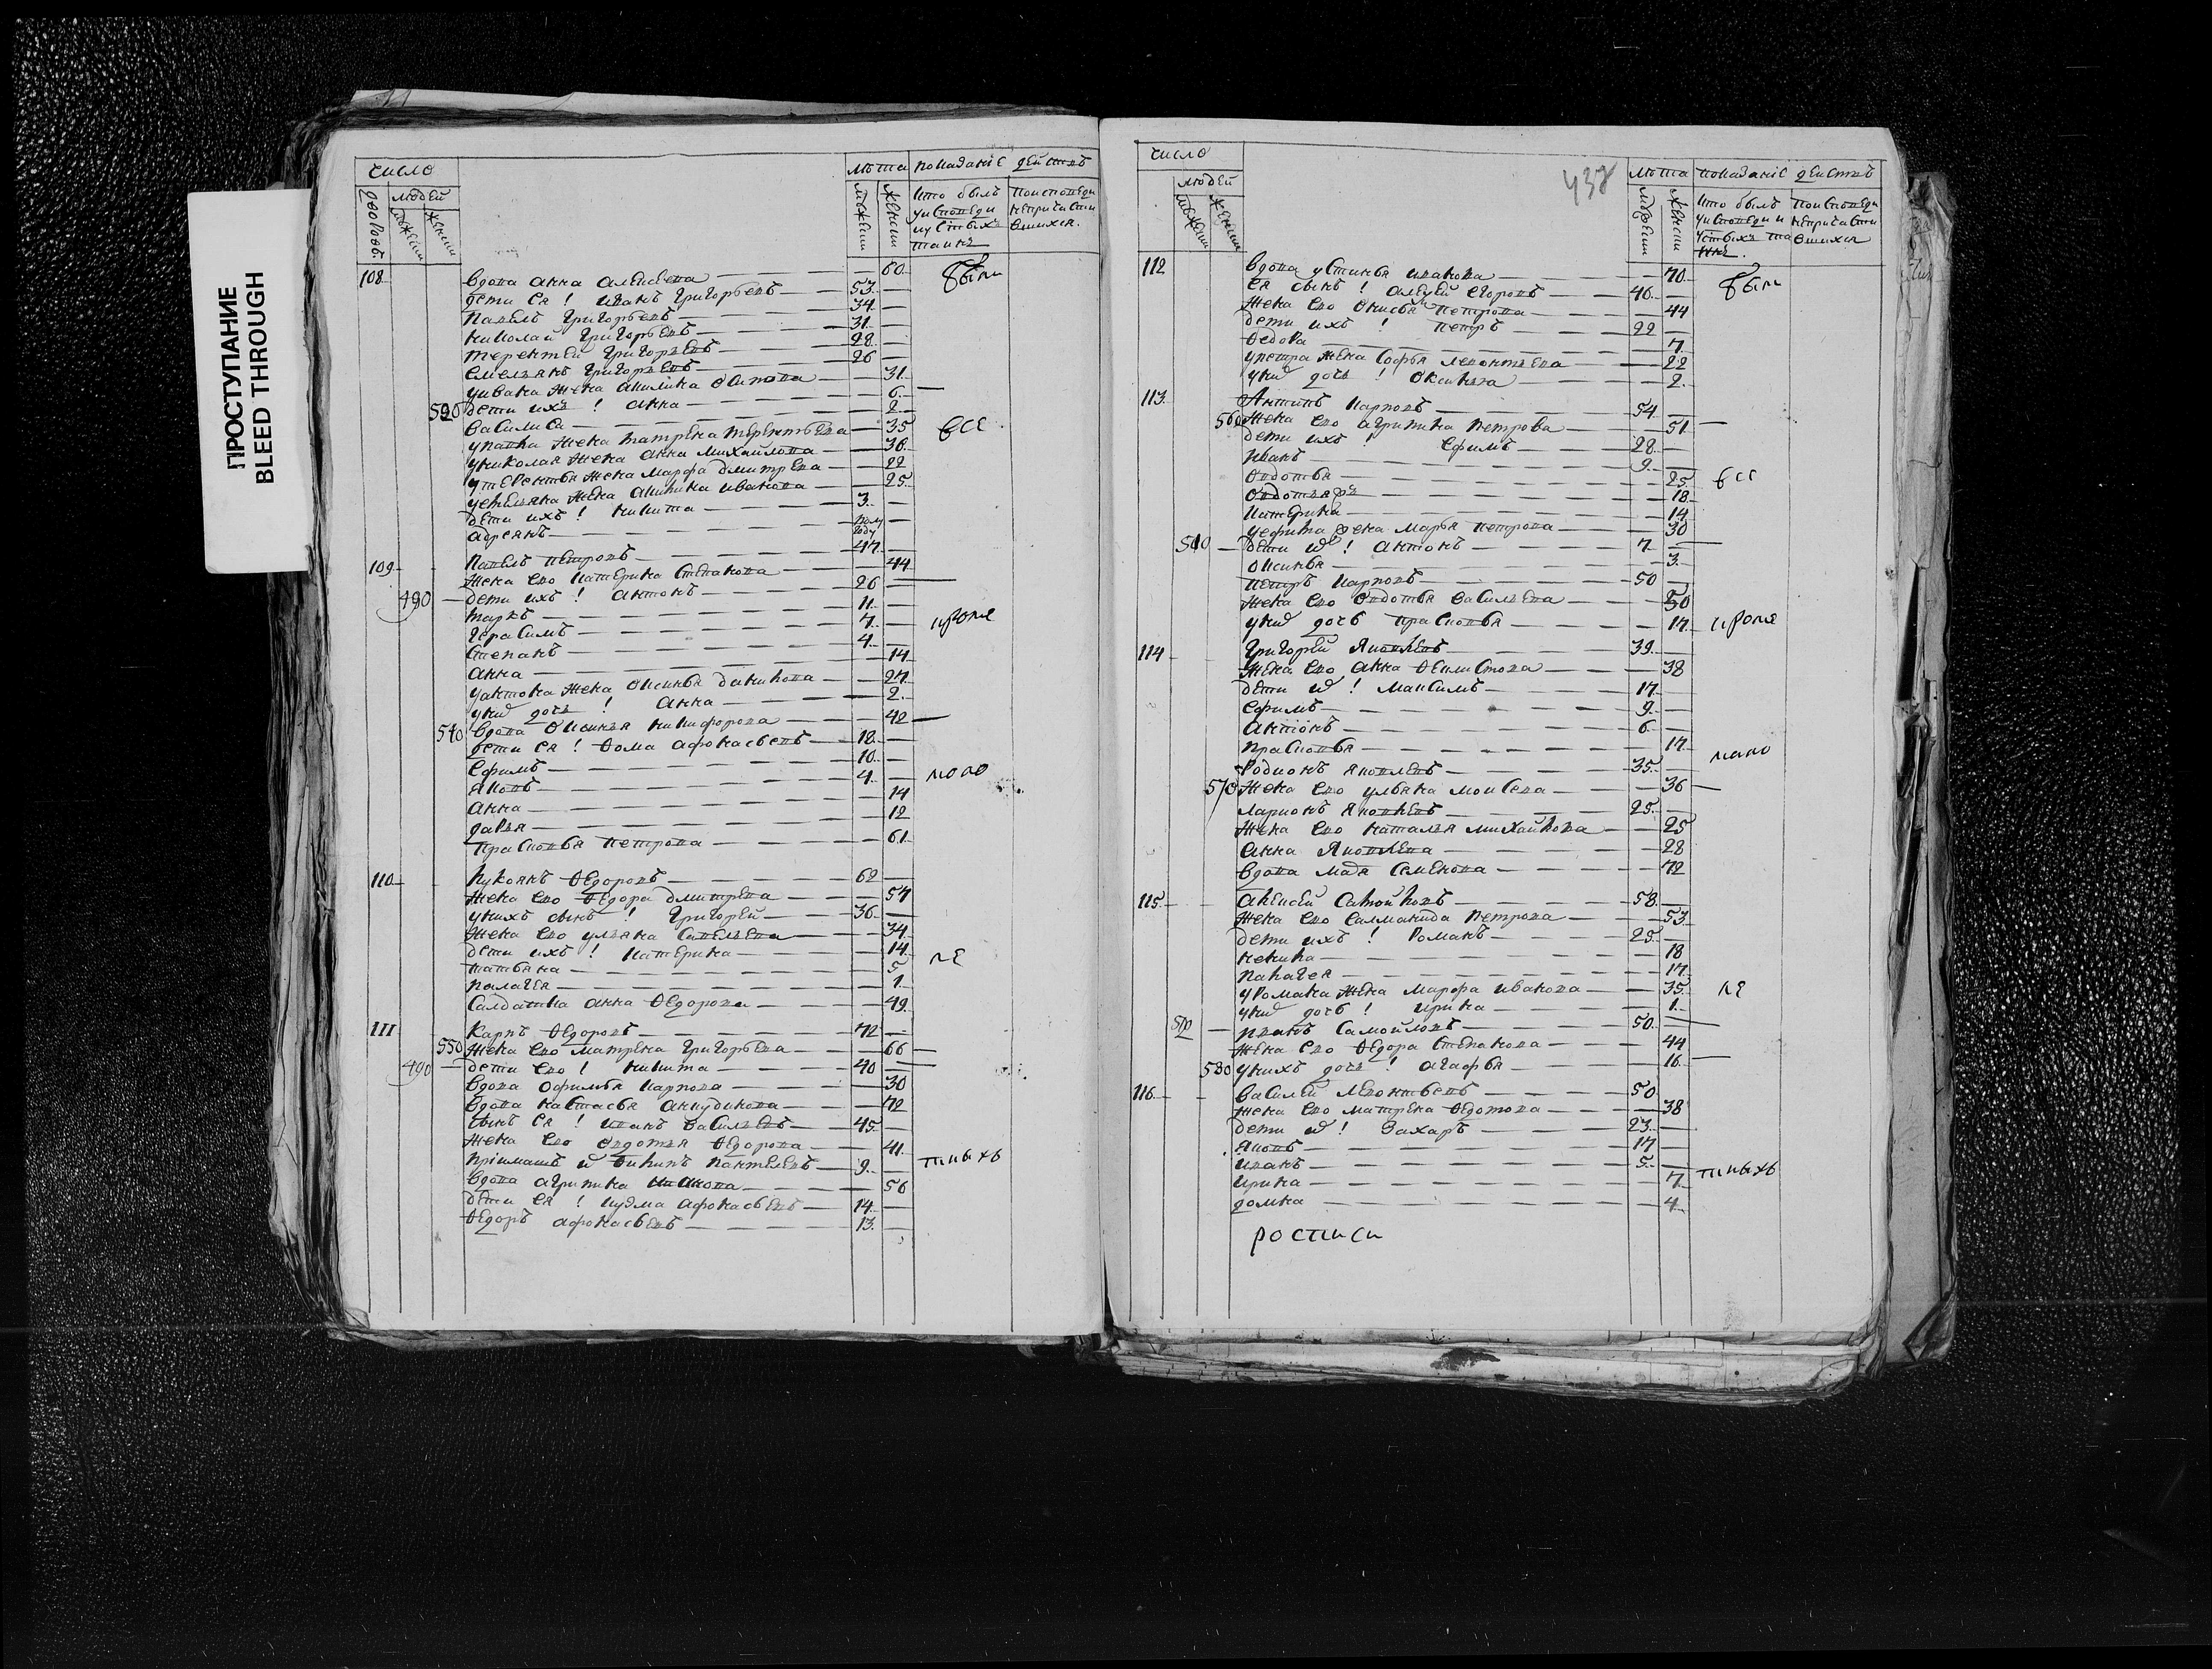 ПРОСТУПАНИЕ
BLEED THROUGH
число
людей
лѣта
показаніе действъ
108 вдова анна алеѯѣева 60 были
дети ея ! иванъ григорьевъ 53
павелъ григорьевъ 34
николай григорьевъ 31
терентей григорьевъ 28
емельянъ григорьевъ 26
уивана жена акилина осипова 31
дети ихъ ! анна 6
василиса 2
упавла жена матрена терентьева 35 все
униколая жена анна михайлова 36
утерентья жена марфа дмитрева 22
уемельяна жена акилина иванова 25
дети ихъ ! никита 3
адреянъ полу году
109 павелъ петровъ 47
жена ево катерина степанова 44
490 дети ихъ ! антонъ 26
маркъ 11
герасимъ 7 кроме
степанъ 4
анна 14
уантона жена оксинья данилова 27
уних дочь ! анна 2
540 вдова оксинья никифорова 42
дети ея ! ѳома афонасьевъ 18
ефимъ 10
яковъ 4 мало
анна 14
дарья 12
прасковья петрова 61
110 лукоянъ ѳедоровъ 62
жена ево ѳедора дмитрева 57
унихъ сынъ ! григорей 36
жена ево ульяна савельева 34
дети ихъ ! катерина 14 ле
татьяна 5
палагея 1
салдатка анна ѳедорова 49
111 карпъ ѳедоровъ 72
550 жена ево матрена григорьева 66
490 дети ево ! никита 40
вдова офимья карпова 30
вдова настасья анкудинова 72
сынъ ея ! иванъ васильевъ 45
жена ево овдотья ѳедорова 41
пріимашъ и филипъ пантелеевъ 9 тныхъ
вдова агрипина иванова 56
дети ея ! кузма афонасьевъ 14
ѳедоръ афонасьевъ 13
437
число
людей
лѣта
показаніе действъ
112 вдова устинья иванова 70 были
ея сынъ ! алеѯѣй егоровъ 46
жена ево оксинья петрова 44
дети ихъ ! петръ 22
ѳедора 7
упетра жена софья леонтьева 22
уних дочь ! оксинья 2
113 антипъ карповъ 54
560 жена ево агрипина петрова 51
дети ихъ ! ефимъ 28
иванъ 9
овдотья 25 все
овдотья 18
катерина 14
уефима жена марья петрова 30
дети их ! антонъ 7
оксинья 3
петръ карповъ 50
жена ево овдотья васильева 50
уних дочь прасковья 17 кроме
114 григорей яковлевъ 39
жена ево анна ѳеклистова 38
дети их ! максимъ 17
ефимъ 9
антонъ 6
прасковья 17 мало
родионъ яковлевъ 35
570 жена ево ульяна моисева 36
ларионъ яковлевъ 25
жена ево наталья михайлова 25
анна яковлева 28
вдова мадя семенова 72
115 алексей самойловъ 58
жена ево саломанида петрова 53
дети ихъ ! романъ 25
ненила 18
палагея 17
уромана жена марфа иванова 35 ле
уних дочь ! ирина 1
иванъ самойловъ 50
жена ево ѳедора степанова 44
580 унихъ дочь ! агафья 16
116 василей леонтьевъ 50
жена ево матрена ѳедотова 38
дети их ! захаръ 23
яковъ 17
иванъ 5
ирина 7 тныхъ
домна 4
росписи